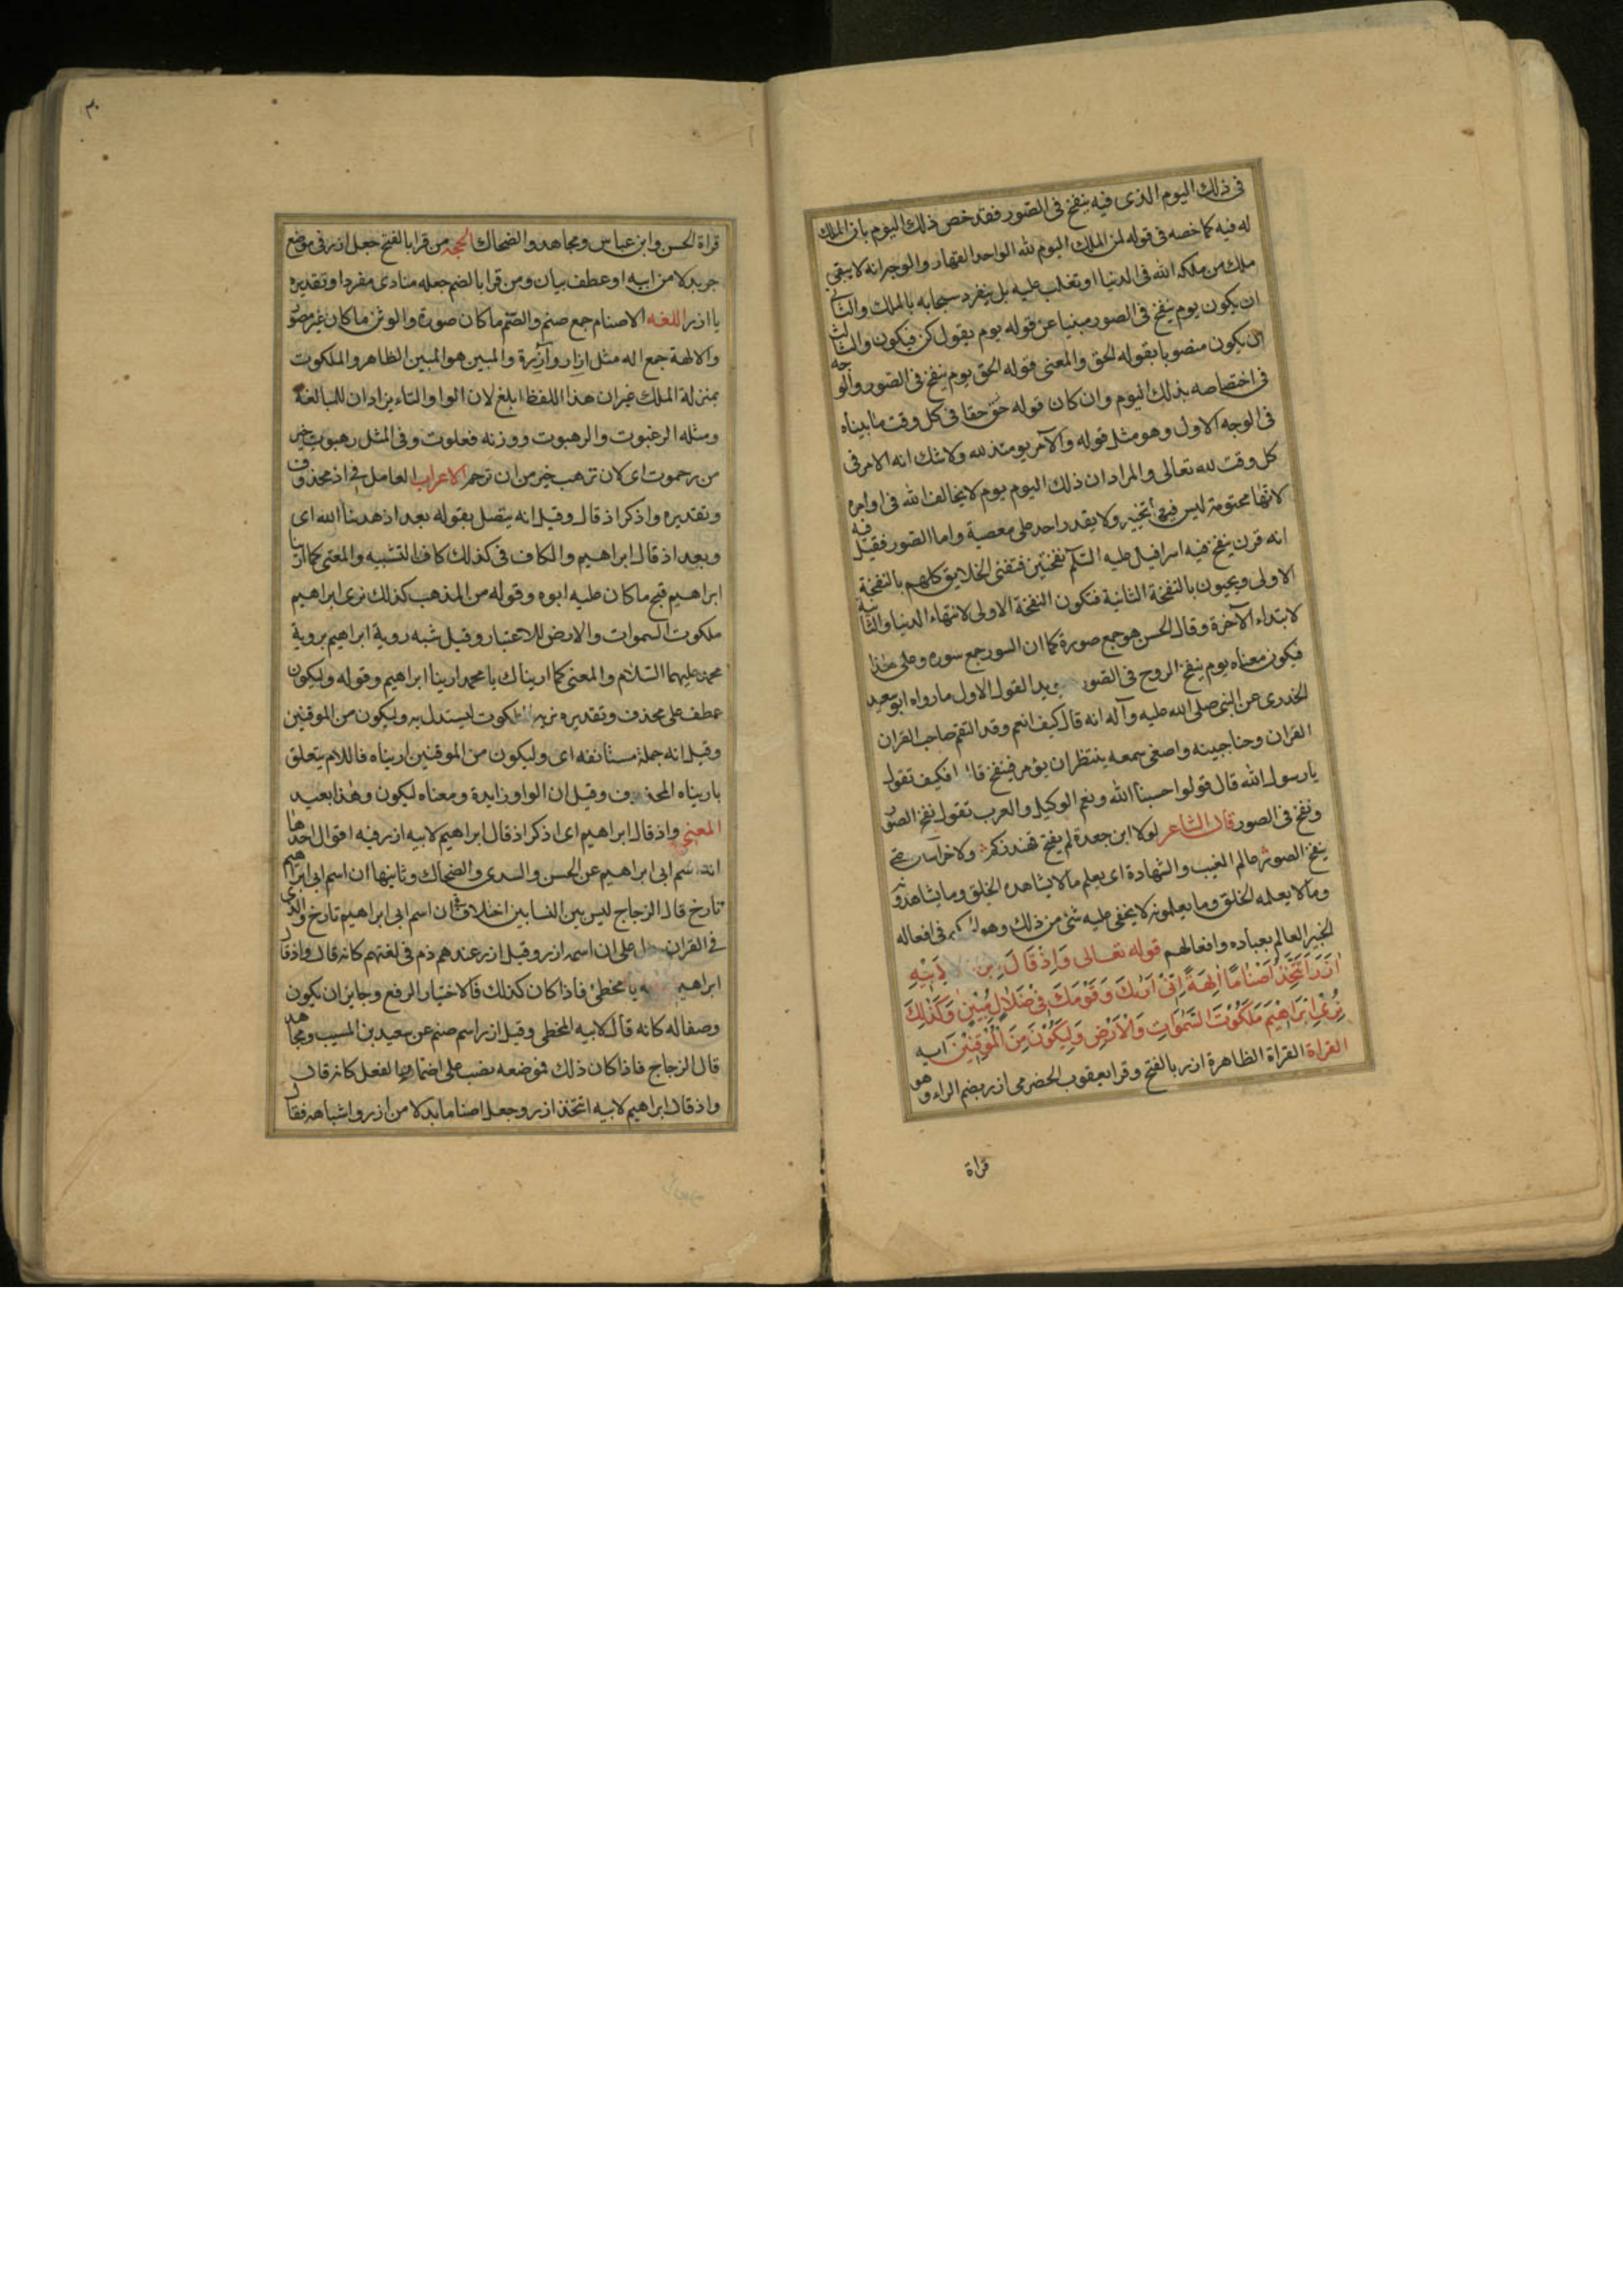 فى ذلك اليوم الذى فيه ينفخ فى الصور فقد خص ذلك اليوم بان الملك
له فيه كما خصه فى قوله لمن الملك اليوم لله الواحد القهار والوجه انه لا يبقى
ملك من ملكه الله فى الدنيا او تغلب عليه بل ينفرد سبحانه بالملك والثانى
ان يكون يوم ينفخ فى الصور مبنيا عن قوله يوم يقول كن فيكون والثالث
ان يكون منصوبا بقوله الحق والمعنى قوله الحق يوم ينفخ فى الصور والوجه
فى اختصاصه بذلك اليوم وان كان قوله حق حقا فى كل وقت ما بيناه
فى الوجه الاول وهو مثل قوله والامر يومئذ لله ولا شك انه الامر فى
كل وقت لله تعالى والمراد ان ذلك اليوم يوم لا يخالف الله فى اوامره
لانها محتومة ليس فيها تخيير ولا يقدر احد على معصية واما الصور فقيل فيه
انه قرن ينفخ فيه اسرافيل عليه السلم نفختين فتفنى الخلايق كلهم بالنفخة
الاولى ويحيون بالنفخة الثانية فتكون النفخة الاولى لانتهاء الدنيا والثانية
لابتداء الآخرة وقال الحسن هو جمع صورة كما ان السور جمع سوره وعلى هذا
فيكون معناه يوم ينفخ الروح فى الصور يد القول الاول ما رواه ابو سعيد
الخدرى عن النبى صلى الله عليه وآله انه قال كيف انعم وقد التقم صاحب القران
القران وحنا جبينه واصغى سمعه ينتظر ان يؤمر فينفخ فكيف نقول
يا رسول الله قال قولوا حسبنا الله ونعم الوكيل والعرب تقول نفخ الصور
ونفخ فى الصور قال الشاعر لولا ابن جعدة لم يفتح قهندزكم ولا خراسان حتى
ينفخ الصور عالم الغيب والشهادة اى يعلم ما لا يشاهده الخلق وما يشاهدونه
وما لا يعلمه الخلق وما يعلمونه لا يخفى عليه شئ من ذلك وهو فى افعاله
الخبير العالم بعباده وافعالهم قوله تعالى وَاِذْ قَالَ لِاَبِيْهِ
اٰزَرَ اَتَتَّخِذُ اَصْنَامًا اٰلِهَةً اِنِّىْ اَرٰىكَ وَ قَوْمَكَ فِىْ ضَلَالٍ مُبِيْنٍ وَكَذٰلِكَ
نُرِىْ اِبْرَاهِيْمَ مَلَكُوْتَ السَّمٰوَاتِ وَالْاَرْضِ وَلِيَكُوْنَ مِنَ الْمُوْقِنِيْنَ ايه
القراة القراة الظاهرة ازر بالفتح وقرا يعقوب الحضرمى ازر بضم الراء وهو
قراة
٣٠
قراة الحسن وابن عباس ومجاهد والضحاك الحجه من قرا بالفتح جعل ازر فى موضع
جر بدلا من ابيه او عطف بيان ومن قرا بالضم جعله منادى مفردا وتقديره
يا ازر اللغه الاصنام جمع صنم والصنم ما كان صورة والوثن ما كان غير مصور
والالهة جمع اله مثل ازار وآزرة والمبين هو المبين الظاهر والملكوت
بمنزلة الملك غير ان هذا اللفظ ابلغ لان الواو والتاء يزادان للمبالغة
ومثله الرغبوت والرهبوت ووزنه فعلوت وفى المثل رهبوت خير
من رحموت اى لان ترهب خير من ان ترحم الاعراب العامل فى اذ محذوف
وتقديره واذكر اذ قال وقيل انه يتصل بقوله بعد اذ هدينا الله اى
وبعد اذ قال ابراهيم والكاف فى كذلك كاف التشبيه والمعنى كما ارينا
ابراهيم قبح ما كان عليه ابوه وقوله من المذهب كذلك نرى ابراهيم
ملكوت السموات والارض للاعتبار وقيل شبه روية ابراهيم بروية
محمد عليهما السلام والمعنى كما اريناك يا محمد ارينا ابراهيم وقوله وليكون
عطف على محذف وتقديره نريه الملكوت ليستدل به وليكون من الموقنين
وقيل انه جملة مستانفه اى وليكون من الموقنين اريناه فاللام يتعلق
باريناه المحذوف وقيل ان الواو زايدة ومعناه ليكون وهذا بعيد
المعنى واذ قال ابراهيم اى اذكر اذ قال ابراهيم لابيه ازر فيه اقوال احدها
انه اسم ابى ابراهيم عن الحسن والسدى والضحاك وثانيها ان اسم ابى ابراهيم
تارخ قال الزجاج ليس بين النسابين اختلاف ان اسم ابى ابراهيم تارخ والذى
فى القران يدل على ان اسمه ازر وقيل ازر عندهم ذم فى لغتهم كانه قال واذ قال
ابراهيم يا مخطئ فاذا كان كذلك فالاختيار الرفع وجايز ان يكون
وصفا له كانه قال لابيه المخطى وقيل ازر اسم صنم عن سعيد بن المسيب ومجاهد
قال الزجاج فاذا كان ذلك فوضعه نصب على اضمار الفعل كانه قال
واذ قال ابراهيم لابيه اتتخذ ازر وجعل اصناما بدلا من ازر واشباهه فقال